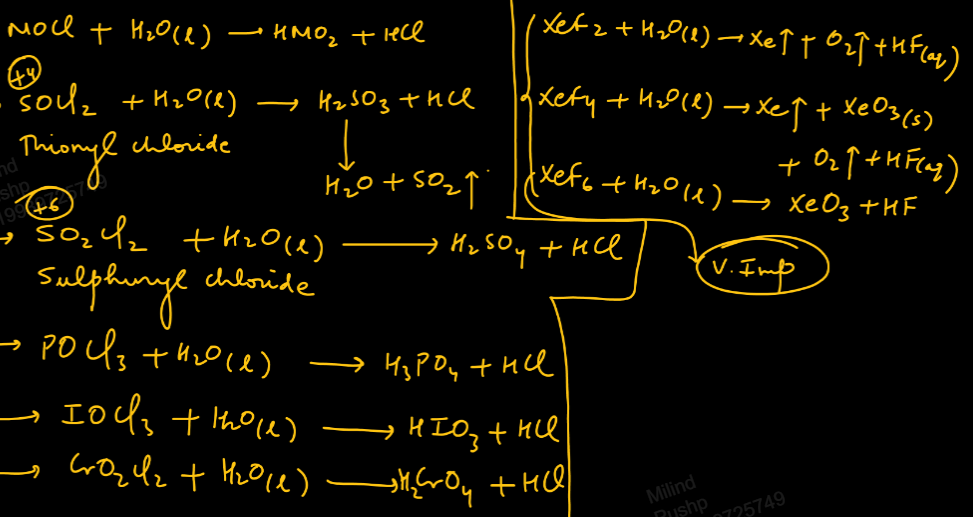 NOCl + H₂O(l) → HNO₂ + HCl
+4
SOCl₂ + H₂O(l) → H₂SO₃ + HCl
Thionyl chloride
↓
H₂O + SO₂↑
+6
→ SO₂Cl₂ + H₂O(l) → H₂SO₄ + HCl
Sulphuryl chloride
→ POCl₃ + H₂O(l) → H₃PO₄ + HCl
→ IOCl₃ + H₂O(l) → HIO₃ + HCl
→ CrO₂Cl₂ + H₂O(l) → H₂CrO₄ + HCl
XeF₂ + H₂O(l) → Xe↑ + O₂↑ + HF(aq)
XeF₄ + H₂O(l) → Xe↑ + XeO₃(s)
+ O₂↑ + HF(aq)
XeF₆ + H₂O(l) → XeO₃ + HF
V. Imp
Milind
Pushp